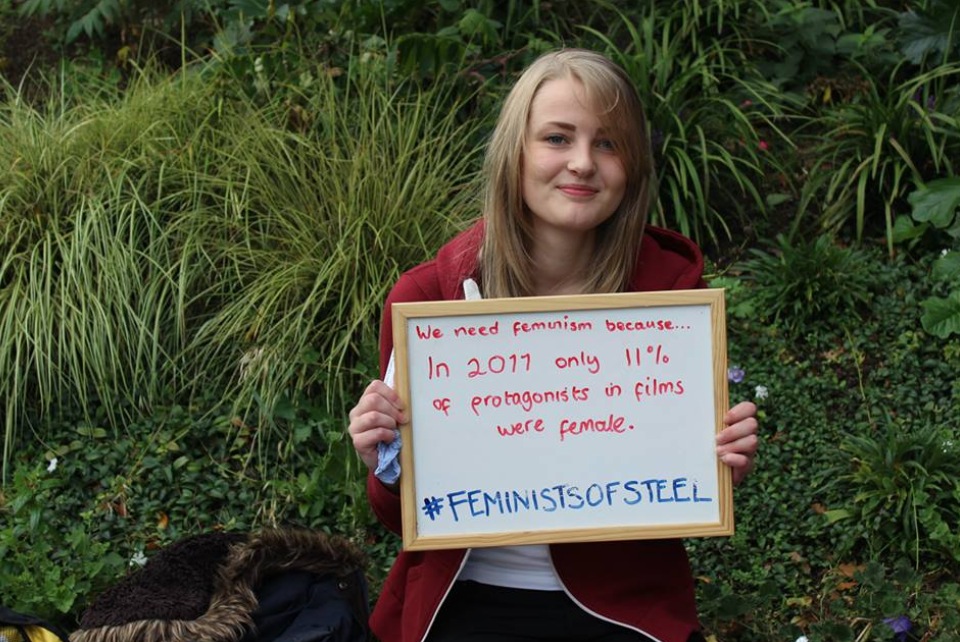 We need feminism because...
In 2011 only 11%
of protagonists in films
were female.
#FEMINISTSOFSTEEL